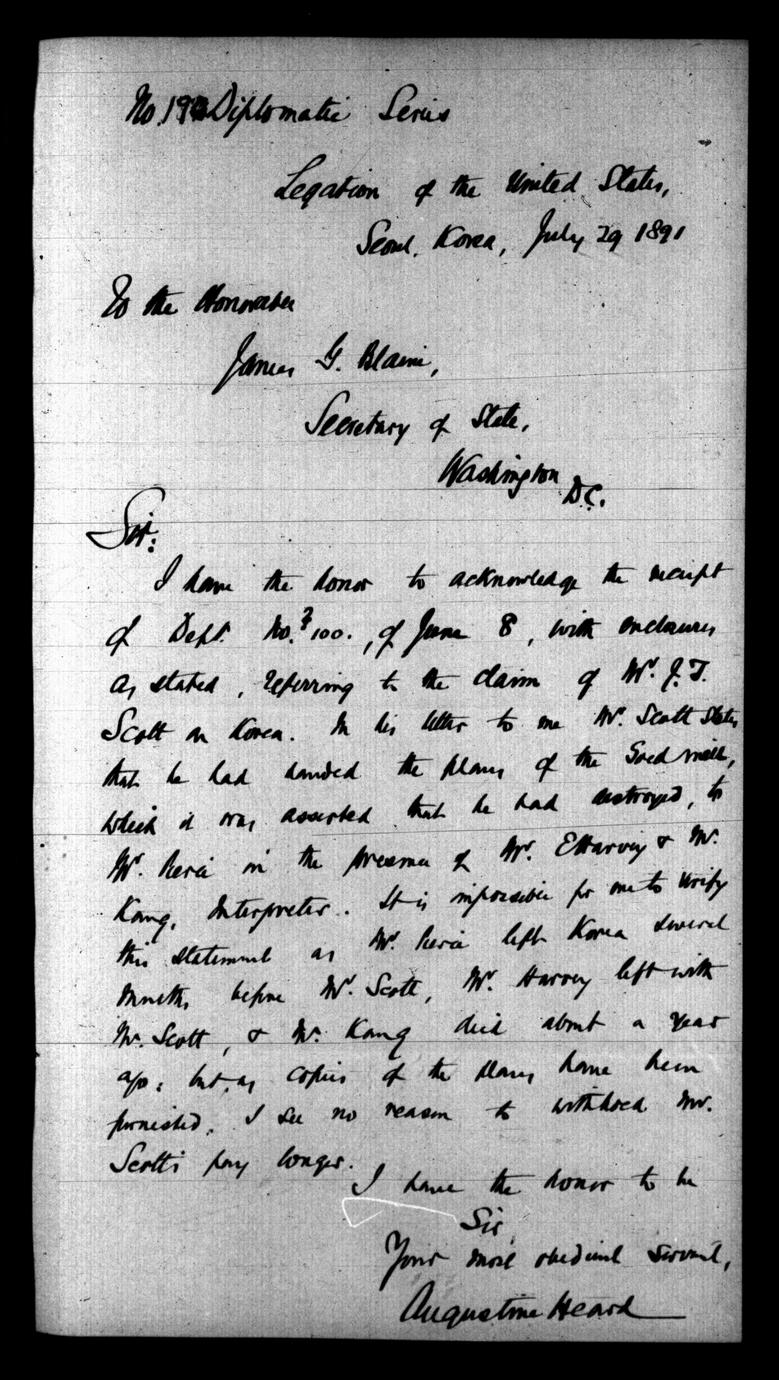 No. 19 Diplomatic Series
Legation of the United States,
Seoul, Korea, July 29 1891
To the Honorable
James G. Blaine,
Secretary of State,
Washington D.C.
Sir:
I have the honor to acknowledge the receipt
of Dept. No. 100., of June 8, with enclosures
as stated, referring to the claim of Mr. J.T.
Scott on Korea. In his letter to me Mr. Scott states
that he had handed the plans of the Gold mill,
which it was asserted that he had destroyed, to
Mr. in the presence of Mr. E Harvey & Mr.
Kang, Interpreter. It is impossible for me to verify
this statement as Mr. left Korea several
months before Mr. Scott, Mr. Harvey left with
Mr. Scott, & Mr. Kang died about a year
ago; but, as copies of the plans have been
furnished, I see no reason to withhold Mr.
Scott's pay longer.
I have the honor to be
Sir,
Your most obedient servant,
Augustine Heard